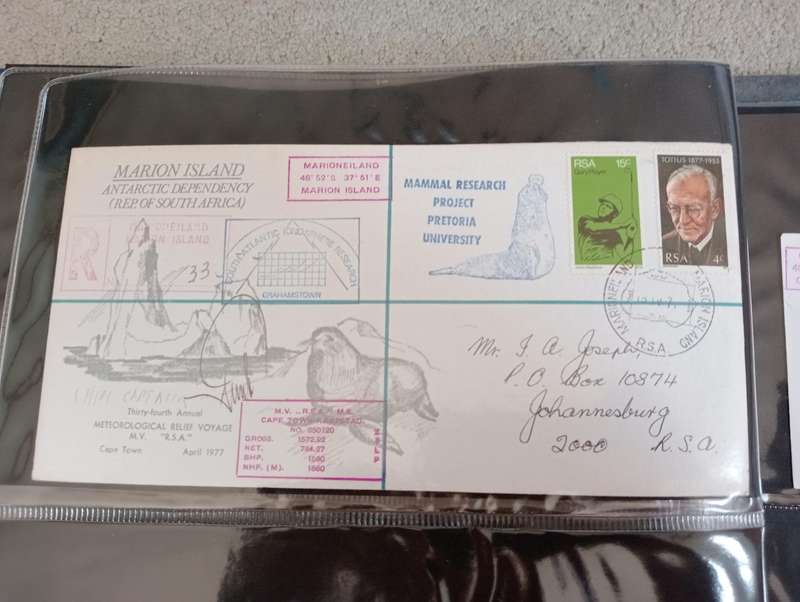 MARION ISLAND
ANTARCTIC DEPENDENCY
(REP. OF SOUTH AFRICA)
MARIONEILAND
46°52'S 37°51'E
MARION ISLAND
MARION ISLAND
33
SOUTH ATLANTIC IONOSPHERE RESEARCH
GRAHAMSTOWN
MAMMAL RESEARCH
PROJECT
PRETORIA
UNIVERSITY
RSA 15c
Gary Player
TOTIUS 1877-1953
RSA 4c
MARIONEILAND
MARION ISLAND
R.S.A.
Mr. I. A. Joseph,
P.O. Box 10874
Johannesburg
2000 R.S.A.
SHIPS CAPTAIN
Thirty-fourth Annual
METEOROLOGICAL RELIEF VOYAGE
M.V. "R.S.A."
Cape Town April 1977
M.V. "R.S.A."
CAPE TOWN
NO. 350120
GROSS. 1572.92
NET. 784.27
BHP. 1560
NHP. (M). 1560